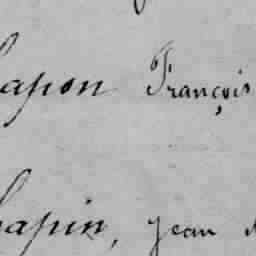 hapon François
hapin, Jean